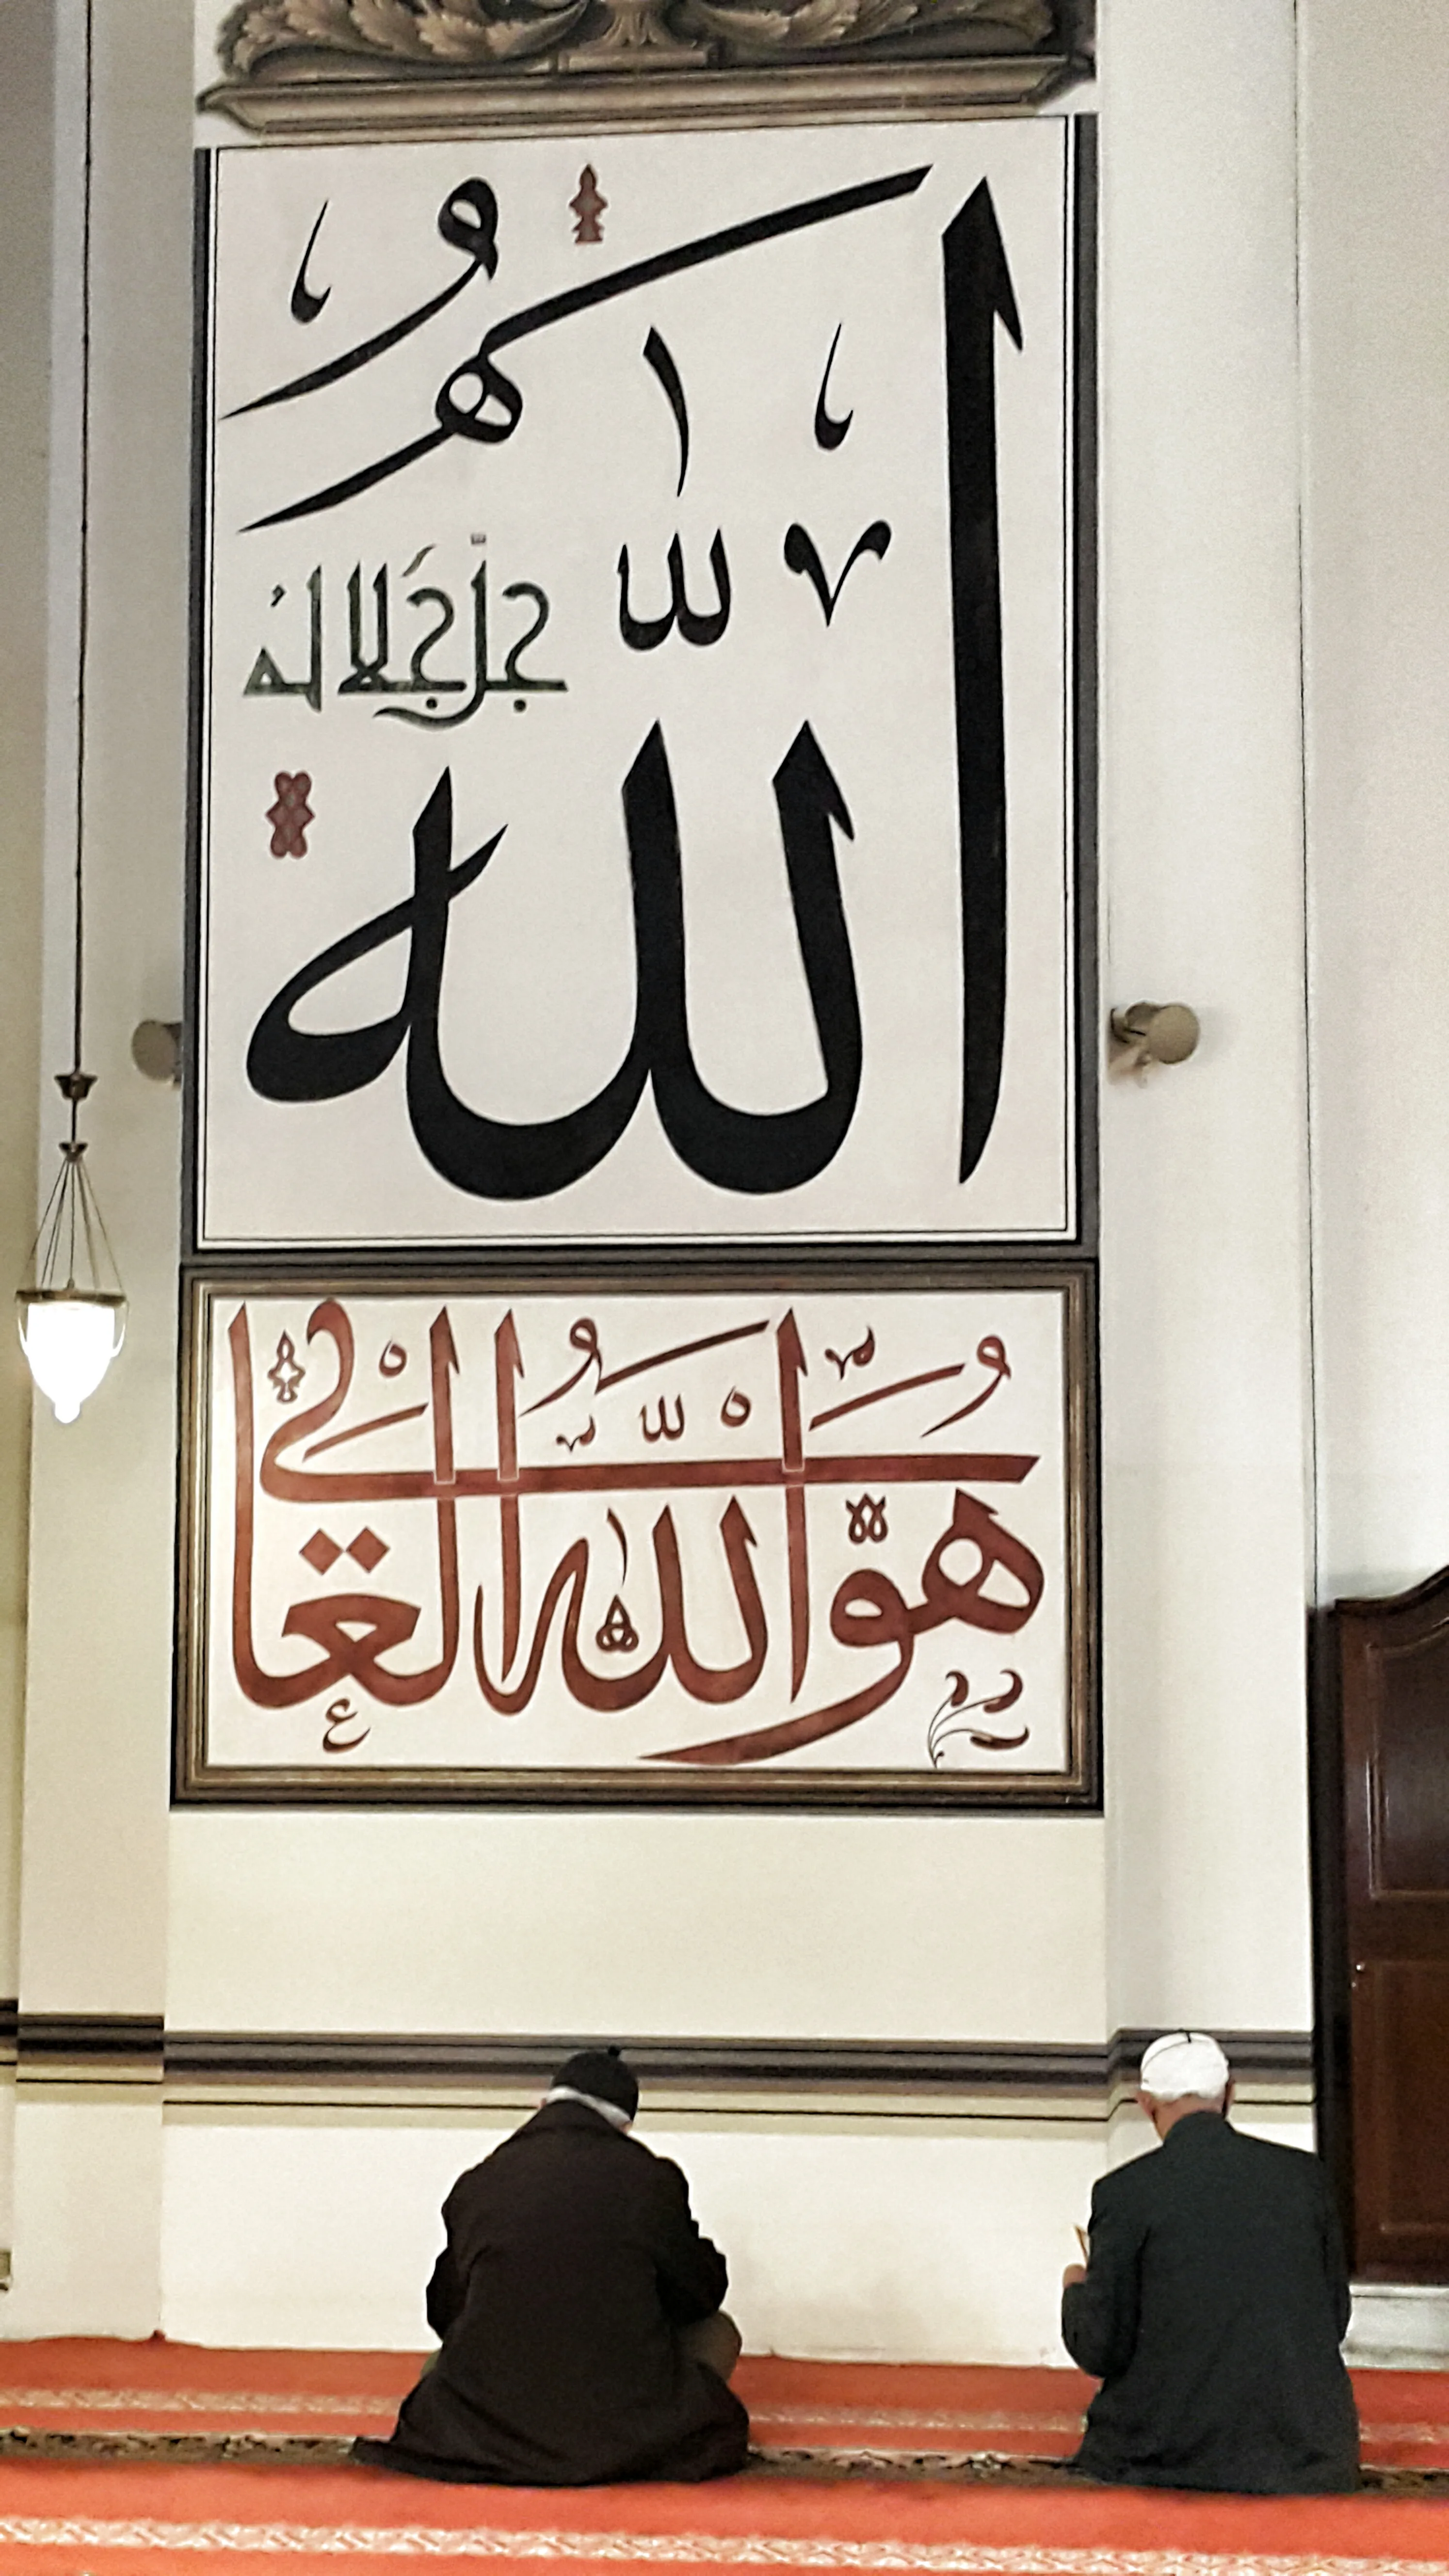 الله
جل جلاله
هو الله